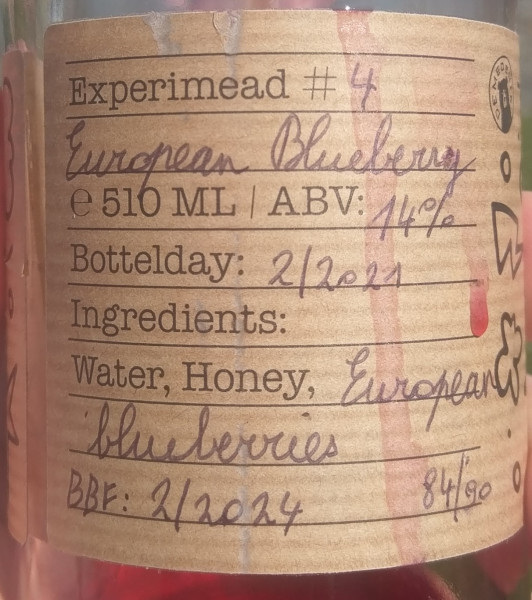 Experimead # 4
European Blueberry
℮ 510 ML | ABV: 14%
Bottelday: 2/2021
Ingredients:
Water, Honey, European
blueberries
BBF: 2/2024 84/90